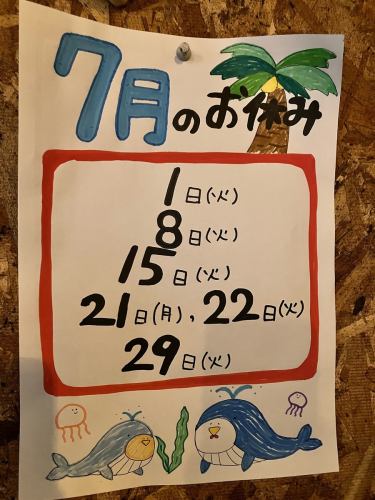 7月のお休み
1日(火)
8日(火)
15日(火)
21日(月),22日(火)
29日(火)